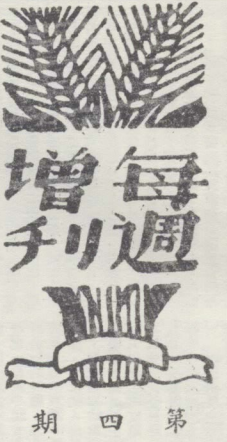 每週
增刊
第四期